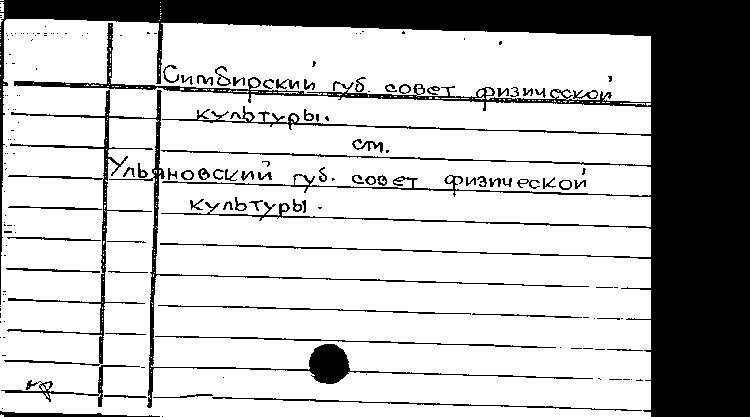 Симбирский губ. совет физической
культуры.
см.
Ульяновский губ. совет физической
культуры.